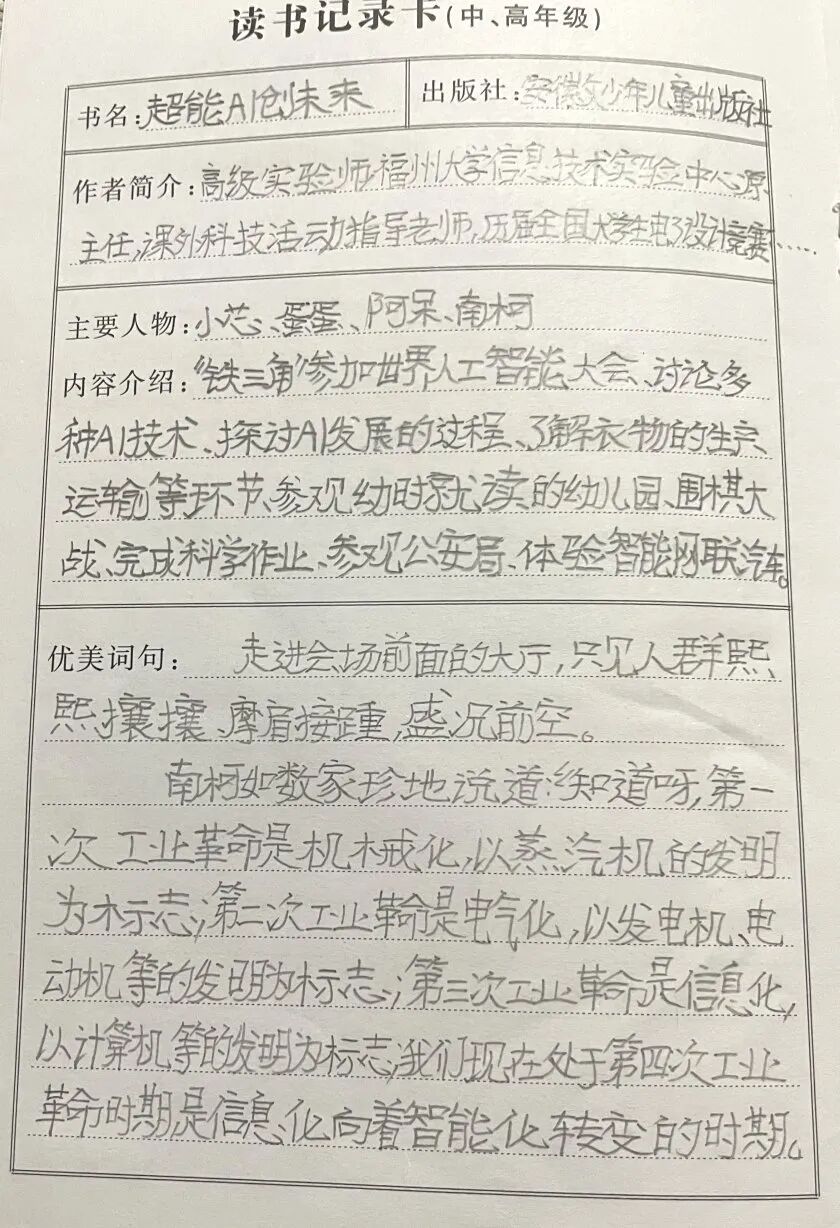 读书记录卡(中、高年级)
书名:超能AI创未来
出版社:安徽少年儿童出版社
作者简介:高级实验师,福州大学信息技术实验中心原
主任,课外科技活动指导老师,历届全国大学生电子设计竞赛……
主要人物:小芯、蛋蛋、阿呆、南柯
内容介绍:“铁三角”参加世界人工智能大会、讨论多
种AI技术、探讨AI发展的过程、了解衣物的生产、
运输等环节、参观幼时就读的幼儿园、围棋大
战、完成科学作业、参观公安局、体验智能网联汽车。
优美词句: 走进会场前面的大厅,只见人群熙
熙攘攘、摩肩接踵,盛况前空。
南柯如数家珍地说道:“知道呀,第一
次工业革命是机械化,以蒸汽机的发明
为标志;第二次工业革命是电气化,以发电机、电
动机等的发明为标志;第三次工业革命是信息化,
以计算机等的发明为标志;我们现在处于第四次工业
革命时期,是信息化向着智能化转变的时期。